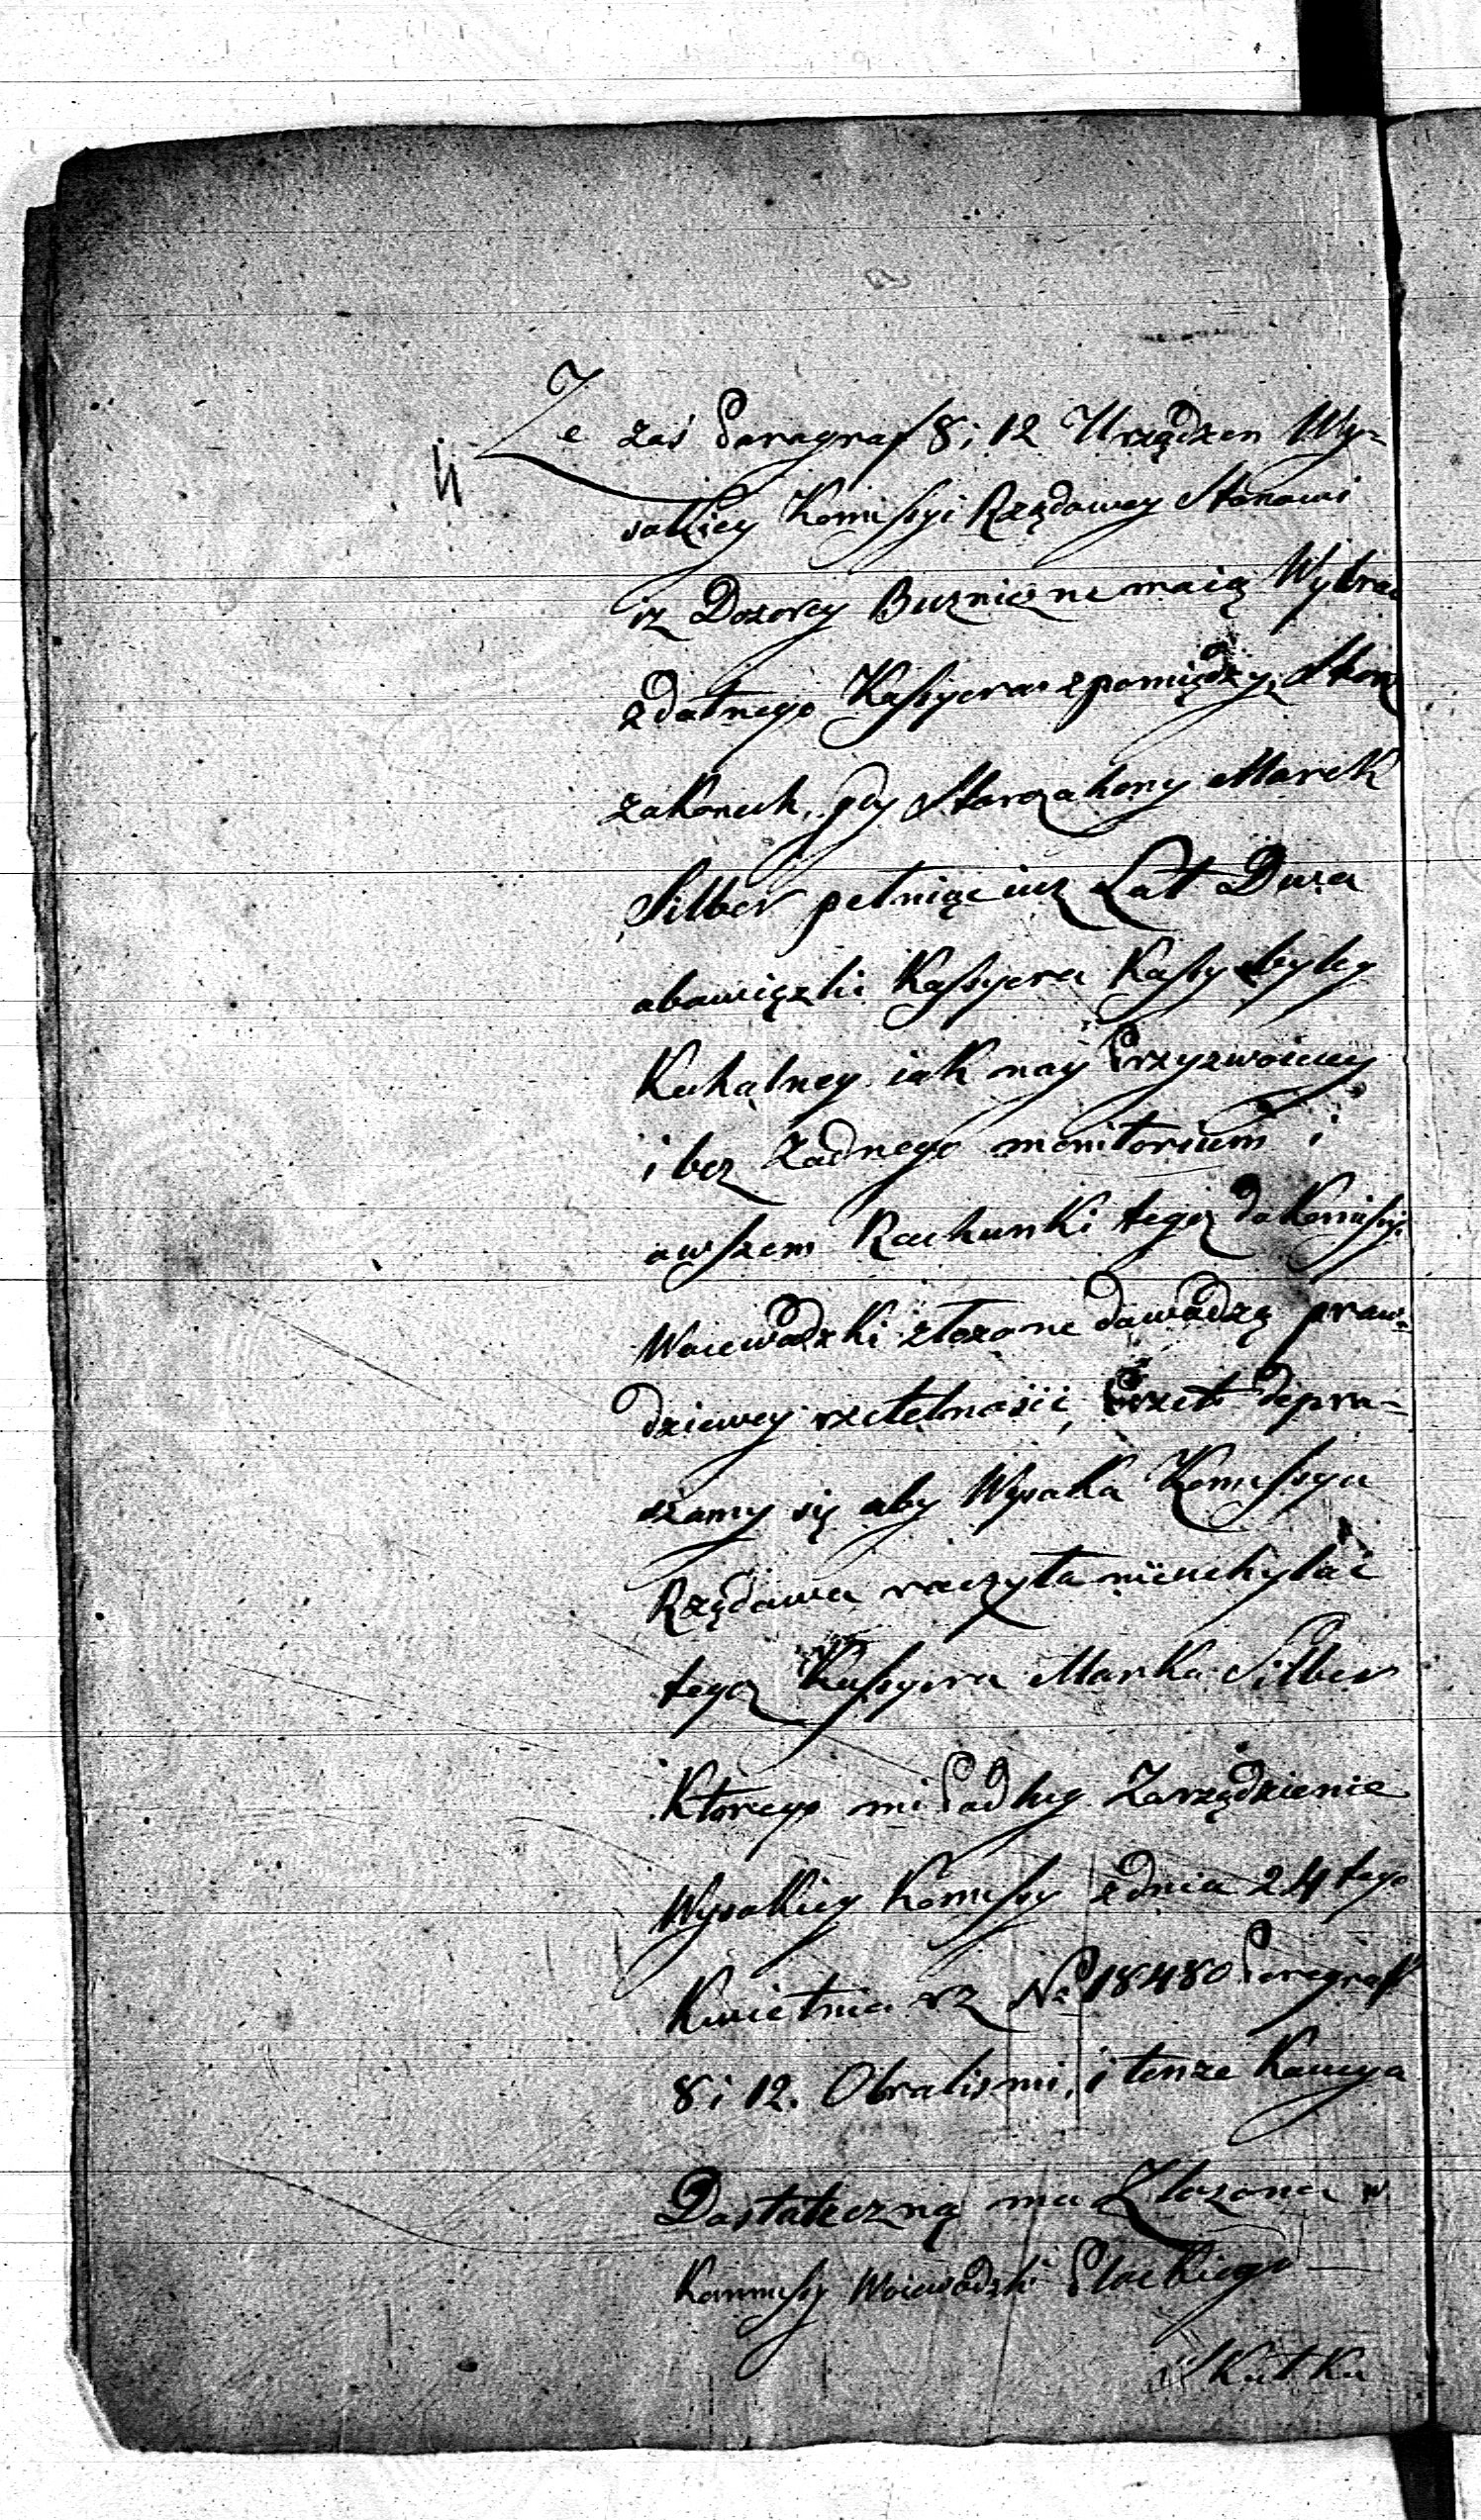 Ze zas Paragraf 8 i 12 Urządzen Wy=
sokiey Komissyi Rządowey Stanowi
iz Dozorcy Buznicżne maią Wybrac
zdatnego Kassyera zpomiędzy Staro
zakonuch, gdy Starozakony Marek
Silber pełniąc iuz Lat Dwa
obowiązki Kassyera Kassy byłey
Kahalney iak nay Przyzwoiciey
i bez Zadnego monitorium i
owszem Rachunki tegoz do Komissyi
Woiewodzki złozone dowodzą praw=
dziwey rzetelnosci, PrzetoUpra=
szamy się aby Wysoka Komissya
Rządowa raczyła nieuchylać
tegoz Kassyera Marka Silber
Ktorego mi Podług Zarządzienie
Wysokiey Komissy zdnia 24 tego
Kwietnia rz No 18480 Paragraff
8 i 12. Obralismi, i tenze Kaucya
Dostateczną ma Złozona w
Kommissy Woiewodzki Płockiego
Skutku